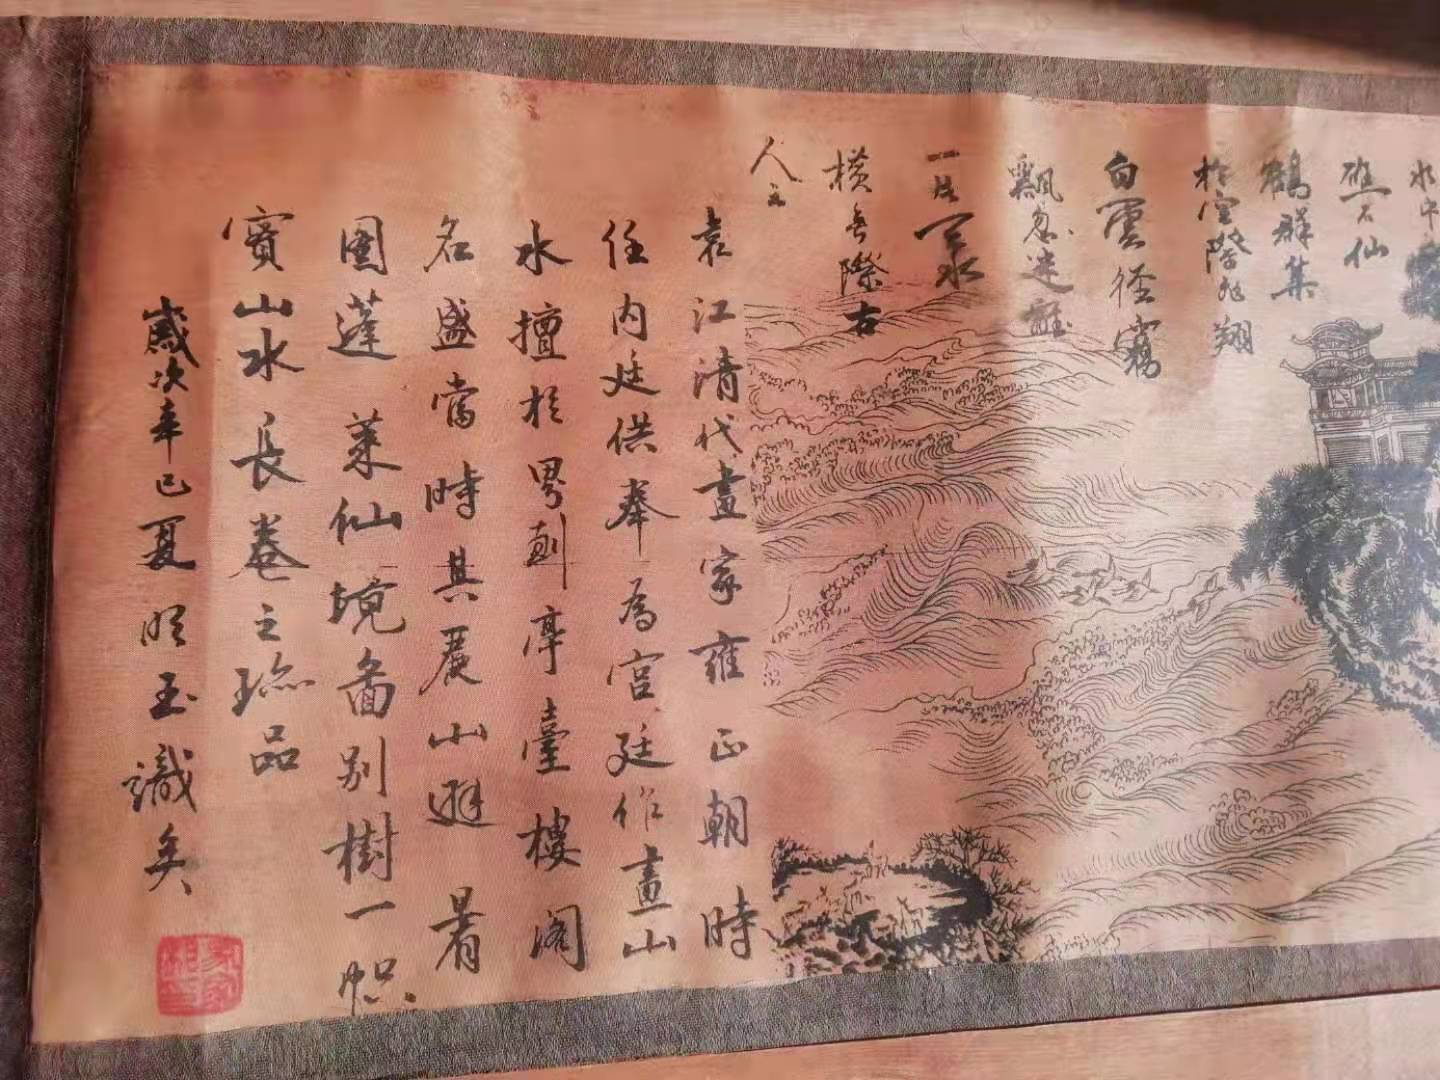 水
礁石仙
鶴群集
於空際飛翔
白雲徑靄
飄忽迷離
一片天水
橫無際古
人云
袁江清代畫家雍正朝時
任內廷供奉為宮廷作畫山
水擅於界劃亭臺樓閣
名盛當時其麗山避暑
園蓬萊仙境圖別樹一幟
實山水長卷之珍品
歲次辛巳夏 玉識矣